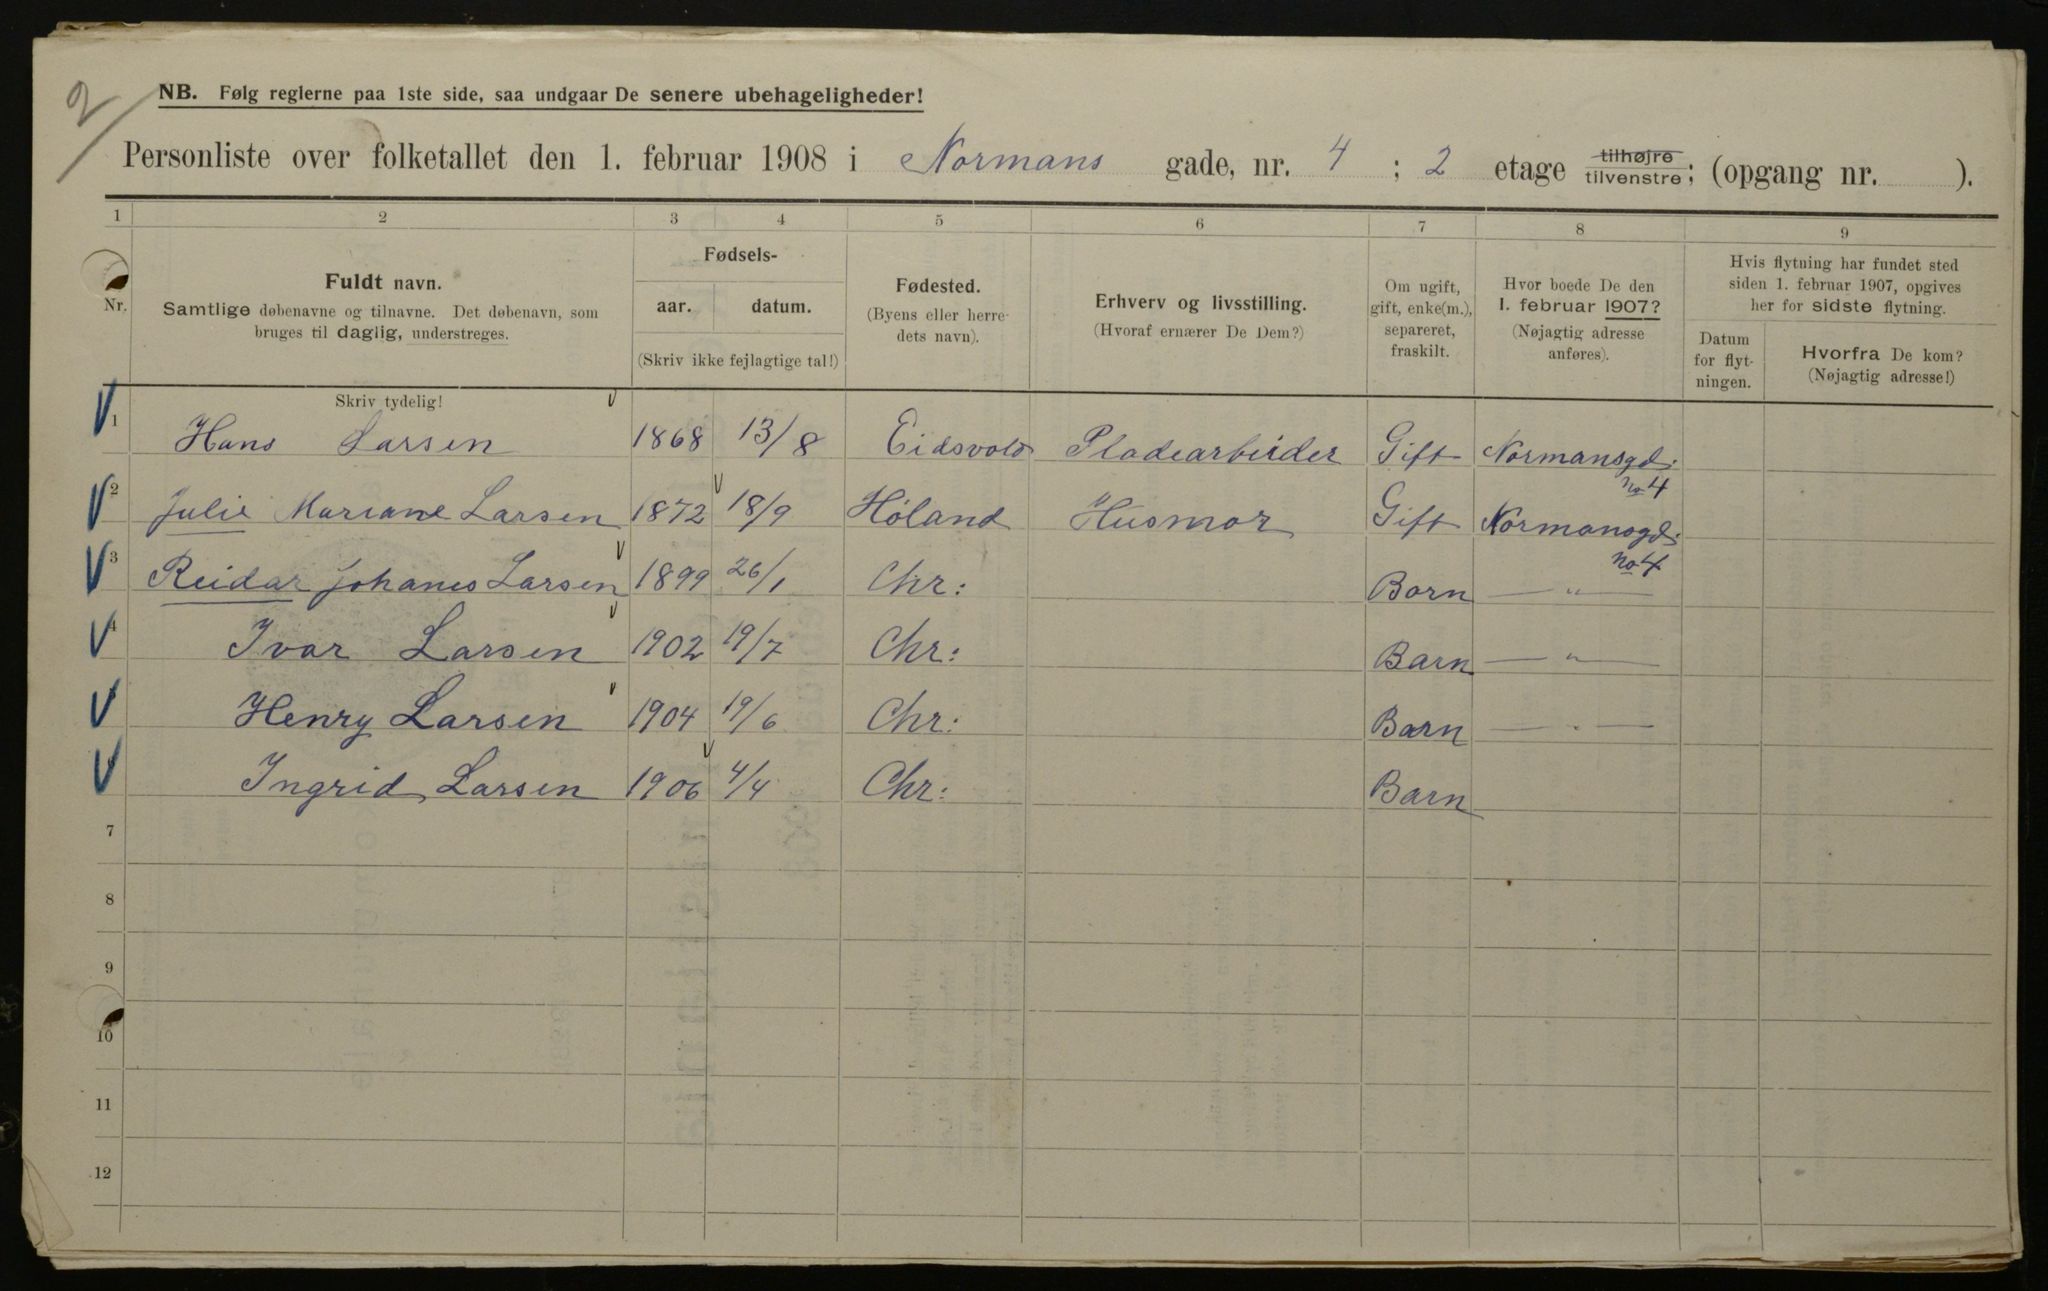 2
NB. Følg reglerne paa 1ste side, saa undgaar De senere ubehageligheder!
Personliste over folketallet den 1. februar 1908 i Normans gade, nr. 4 ; 2 etage tilhøjre tilvenstre; (opgang nr. ).
1 2 3 4 5 6 7 8 9
Nr.
Fuldt navn.
Samtlige døbenavne og tilnavne. Det døbenavn, som
bruges til daglig, understreges.
Fødsels-
aar. datum.
(Skriv ikke fejlagtige tal!)
Fødested.
(Byens eller herre-
dets navn).
Erhverv og livsstilling.
(Hvoraf ernærer De Dem?)
Om ugift,
gift, enke(m.),
separeret,
fraskilt.
Hvor boede De den
1. februar 1907?
(Nøjagtig adresse
anføres).
Hvis flytning har fundet sted
siden 1. februar 1907, opgives
her for sidste flytning.
Datum
for flyt-
ningen.
Hvorfra De kom?
(Nøjagtig adresse!)
Skriv tydelig!
1 Hans Larsen 1868 13/8 Eidsvold Pladearbeider Gift Normansgd:
no 4
2 Julie Mariane Larsen 1872 18/9 Høland Husmor Gift Normansgd:
no 4
3 Reidar Johanes Larsen 1899 26/1 Chr: Barn — " —
4 Ivar Larsen 1902 19/7 Chr: Barn — " —
Henry Larsen 1904 19/6 Chr: Barn — " —
Ingrid Larsen 1906 4/4 Chr: Barn
7
8
9
10
11
12